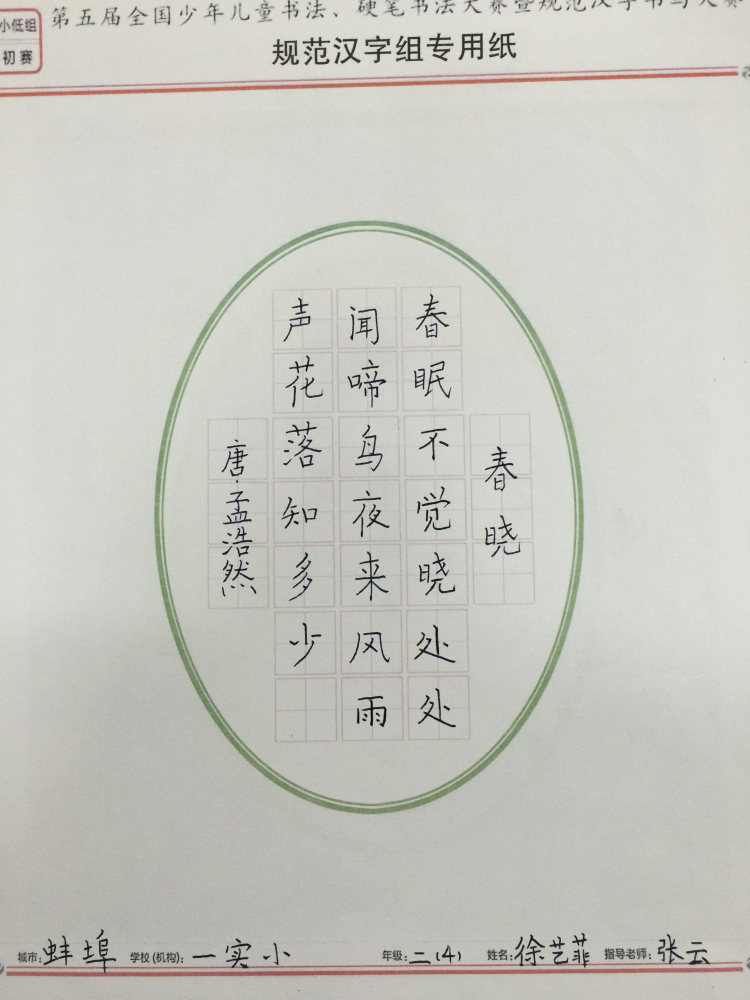 小低组
初赛
第五届全国少年儿童书法、硬笔书法大赛暨规范汉字书写大赛
规范汉字组专用纸
春晓
春眠不觉晓处处
闻啼鸟夜来风雨
声花落知多少
唐·孟浩然
城市:蚌埠 学校(机构):一实小 年级:二(4) 姓名:徐艺菲 指导老师:张云